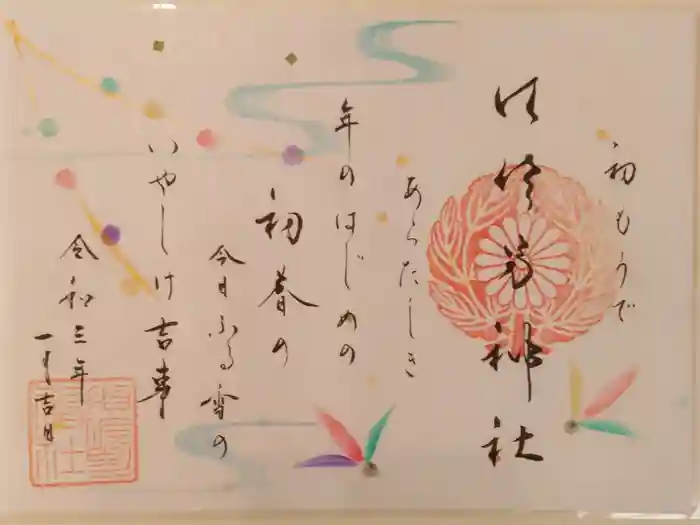 初もうで
神社
あらたしき
年のはじめの
初春の
今日ふる雪の
いやしけ吉事
令和三年
一月吉日